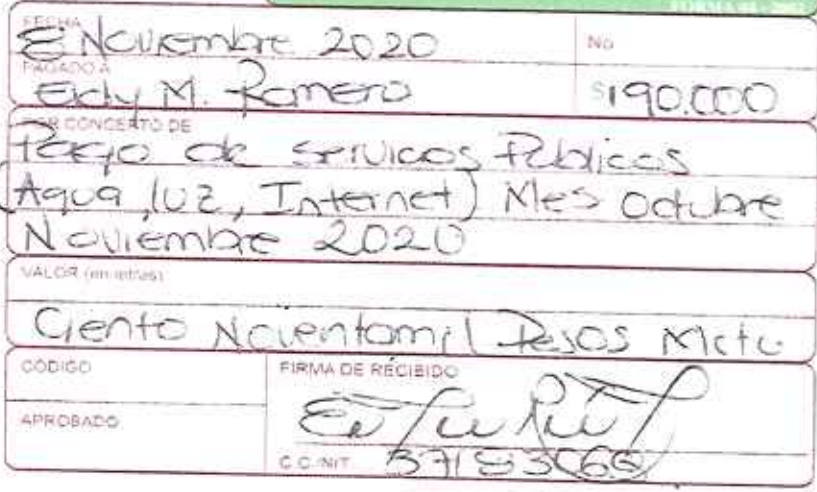 FORMA 01 - 2002
FECHA
8 Noviembre 2020
No
PAGADO A
Eidy M. Romero
$190.000
POR CONCEPTO DE
Pago de servicos Publicos
(Agua, luz, Internet) Mes Octubre
Noviembre 2020
VALOR (en letras)
Ciento Noventamil Pesos Mcte
CODIGO
FIRMA DE RECIBIDO
APROBADO
C.C./NIT